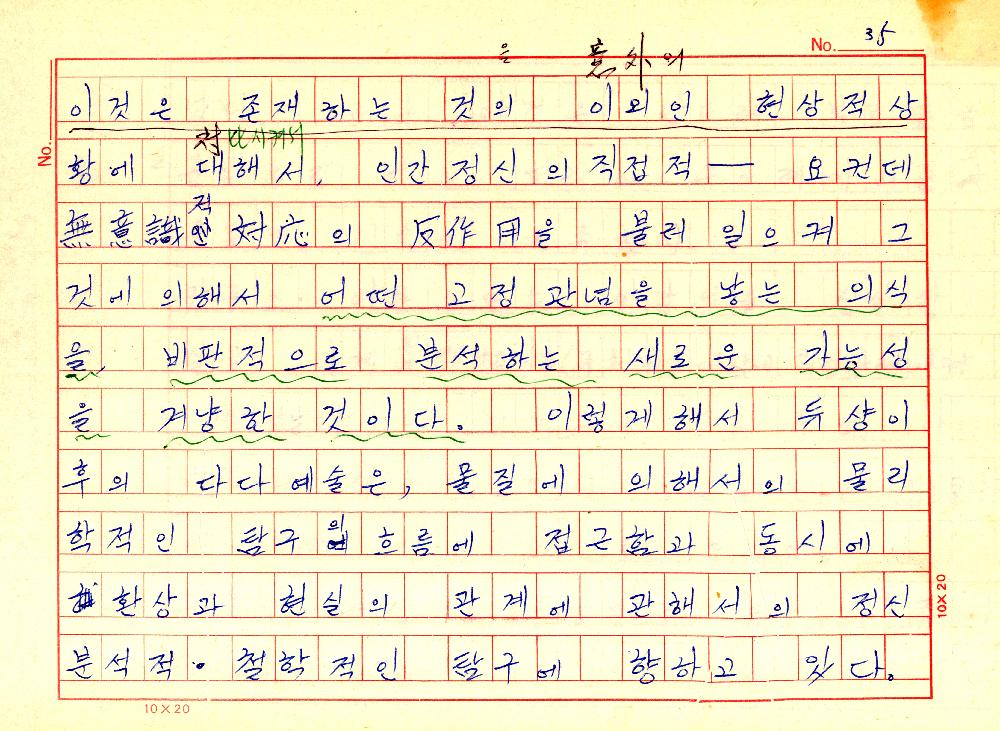 No. 35
을 意外의
이것은 존재하는 것의 이외인 현상적상
対 比시켜서
No.
황에 대해서, 인간정신의 직접적— 요컨데
적
無意識 対応의 反作用을 불러 일으켜 그
것에 의해서 어떤 고정관념을 낳는 의식
을, 비판적으로 분석하는 새로운 가능성
을 겨냥한 것이다. 이렇게해서 듀샹이
후의 다다예술은, 물질에 의해서의 물리
의
학적인 탐구 흐름에 접근함과 동시에
환상과 현실의 관계에 관해서의 정신
분석적·철학적인 탐구에 향하고 있다.
10X20
10X20